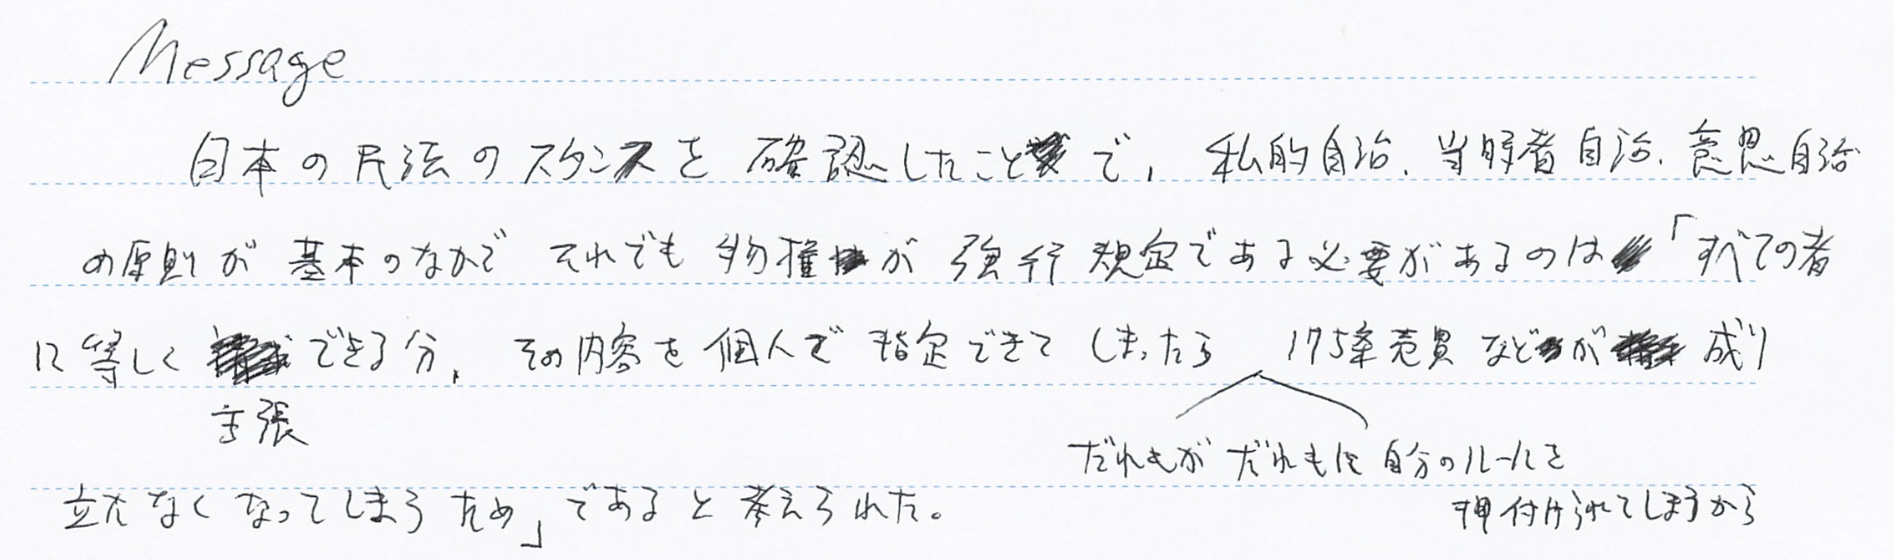 Message
日本の民法のスタンスを確認したことで、私的自治、当事者自治、意思自治
の原則が基本のなかで それでも物権が強行規定である必要があるのは「すべての者
に等しく主張できる分、その内容を個人で指定できてしまったら 175条売買などが成り
だれもがだれもに自分のルールを
押付けられてしまうから
立たなくなってしまうため」であると考えられた。